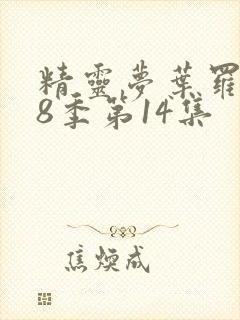 精靈夢葉羅
8季第14集
焦煥成